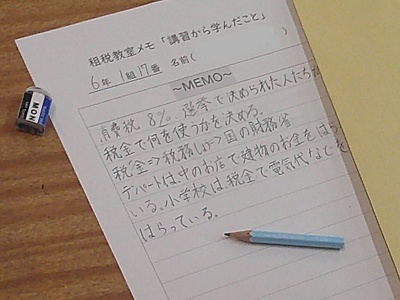 租税教室メモ「講習から学んだこと」
6年 1組 17番 名前( )
~MEMO~
消費税 8%。選挙で決められた人たちが
税金で何を使うかを決める。
税金⇒税務しょ⇒国の財務省
デパートは、中のお店で建物のお金をはらって
いる。小学校は、税金で電気代などを
はらっている。
MON